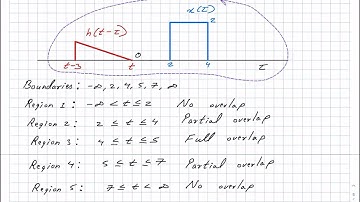 x(τ)
h(t-τ)
2
0
t-3 t 2 4 τ
Boundaries: -∞, 2, 4, 5, 7, ∞
Region 1: -∞ < t ≤ 2 No overlap
Region 2: 2 ≤ t ≤ 4 Partial overlap
Region 3: 4 ≤ t ≤ 5 Full overlap
Region 4: 5 ≤ t ≤ 7 Partial overlap
Region 5: 7 ≤ t < ∞ No overlap